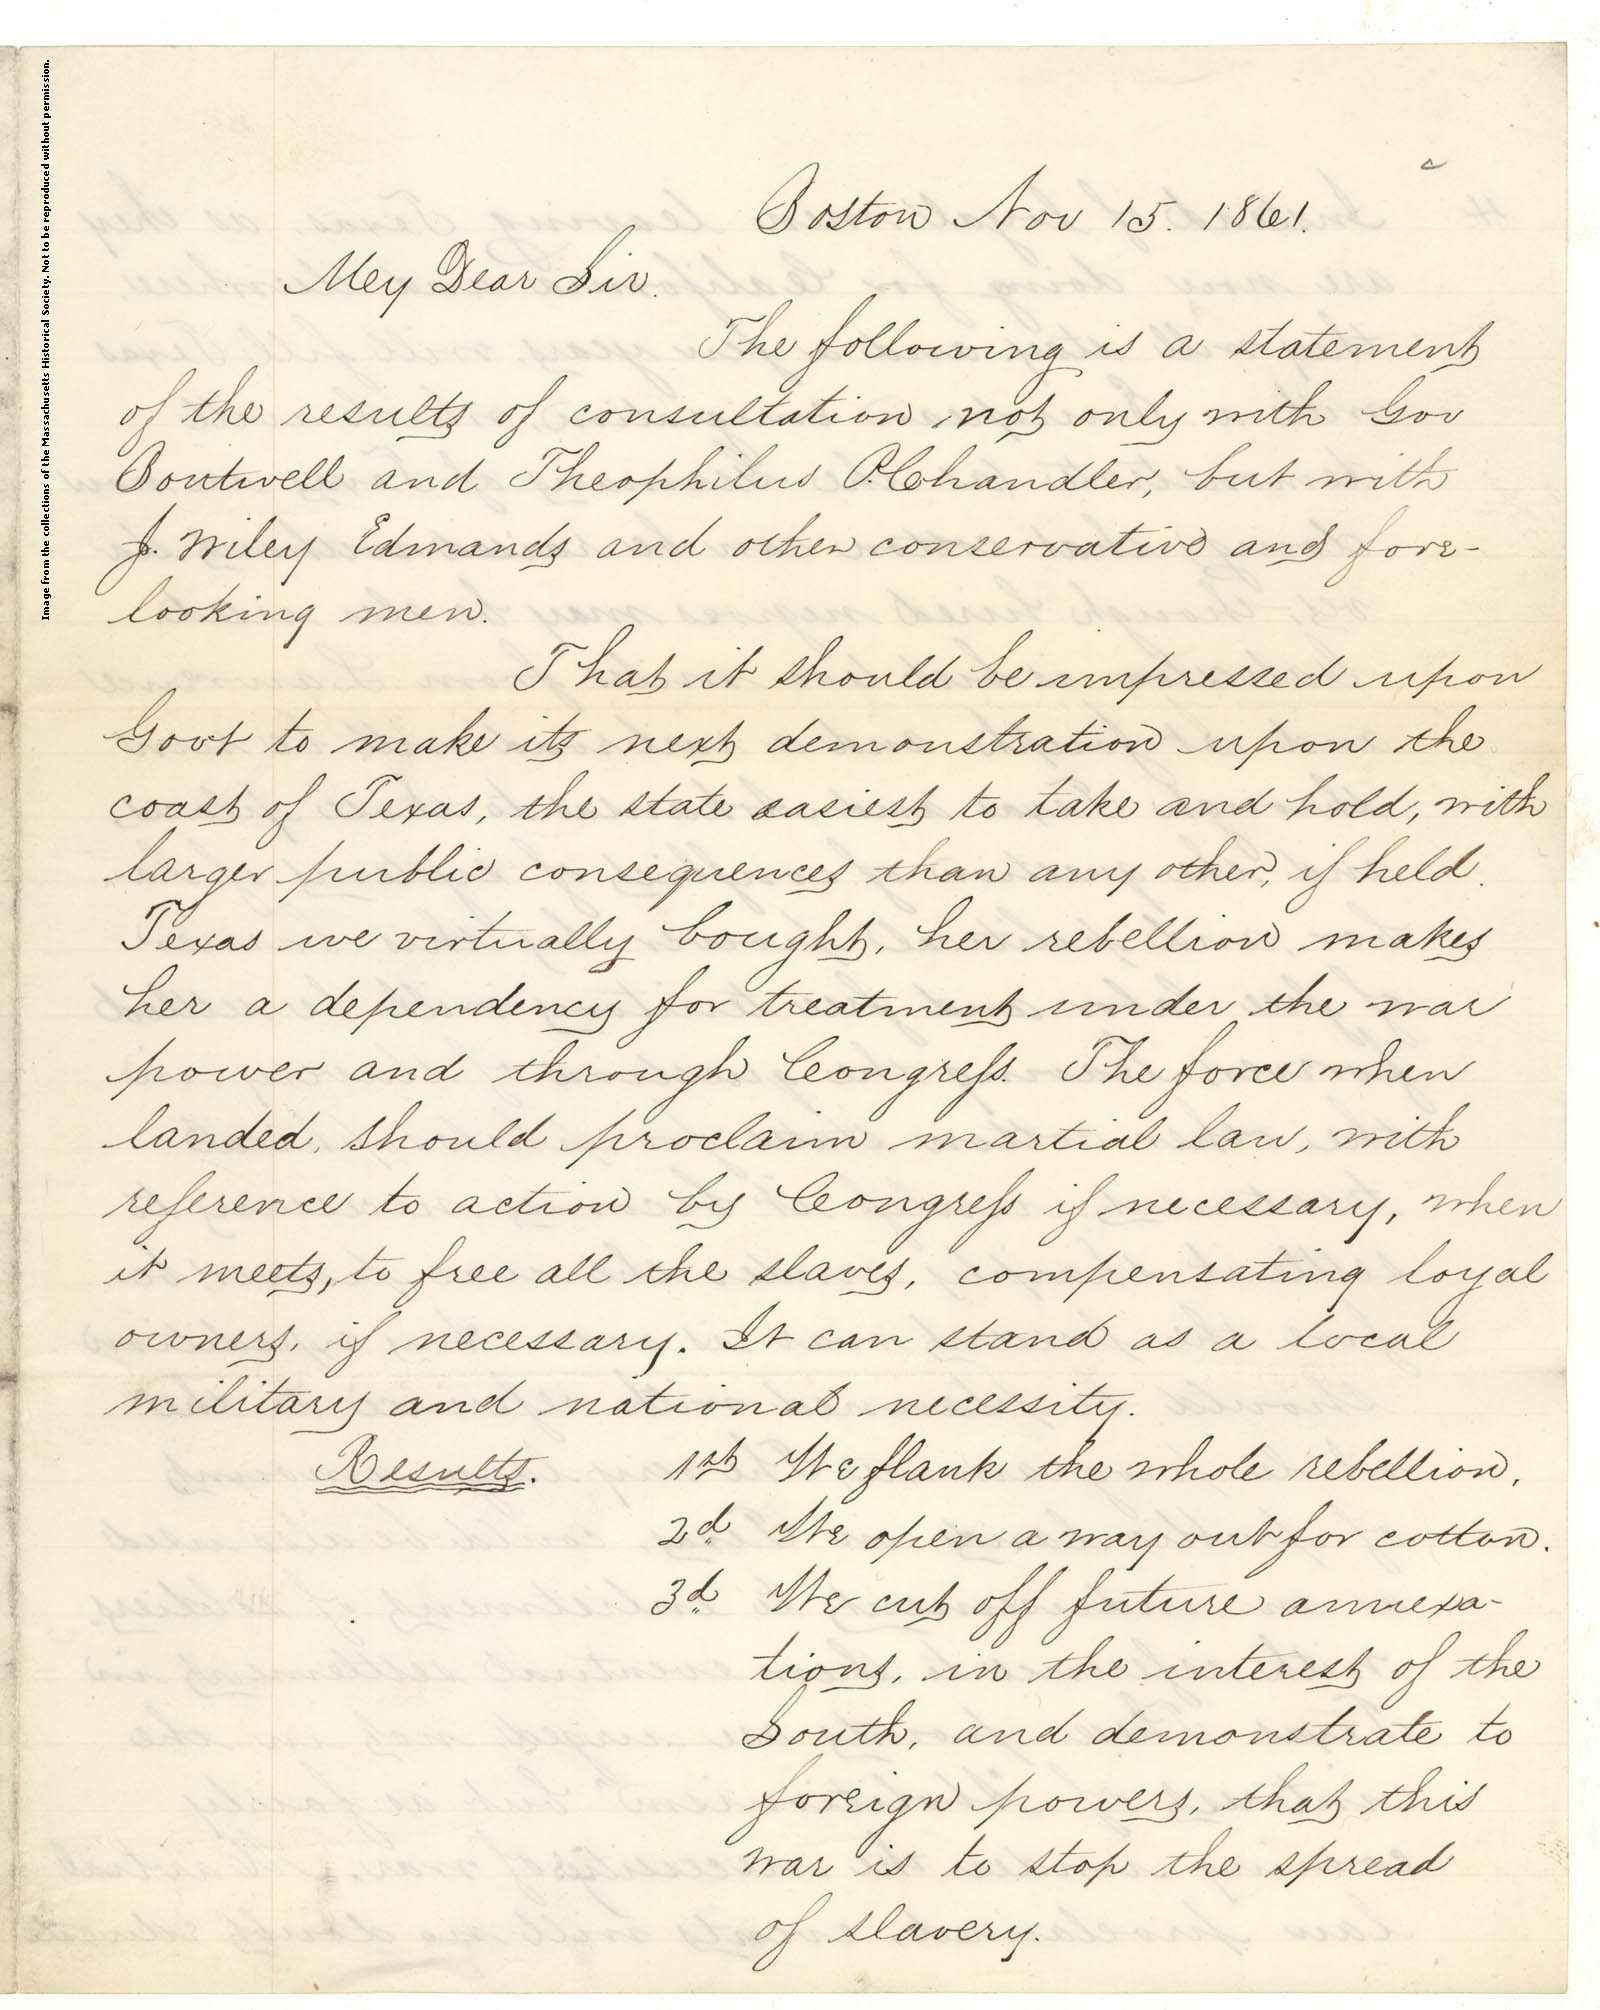 Image from the collections of the Massachusetts Historical Society. Not to be reproduced without permission.
Boston Nov 15. 1861.
My Dear Sir.
The following is a statement
of the results of consultation not only with Gov
Boutwell and Theophilus P. Chandler, but with
J. Wiley Edmands and other conservative and fore-
looking men.
That it should be impressed upon
Govt to make its next demonstration upon the
coast of Texas, the state easiest to take and hold, with
larger public consequences than any other, if held.
Texas we virtually bought, her rebellion makes
her a dependency for treatment under the war
power and through Congress. The force when
landed, should proclaim martial law, with
reference to action by Congress if necessary, when
it meets, to free all the slaves, compensating loyal
owners, if necessary. It can stand as a local
military and national necessity.
Results. 1st We flank the whole rebellion,
2d We open a way out for cotton.
3d We cut off future annexa-
tions, in the interest of the
South, and demonstrate to
foreign powers, that this
war is to stop the spread
of slavery.